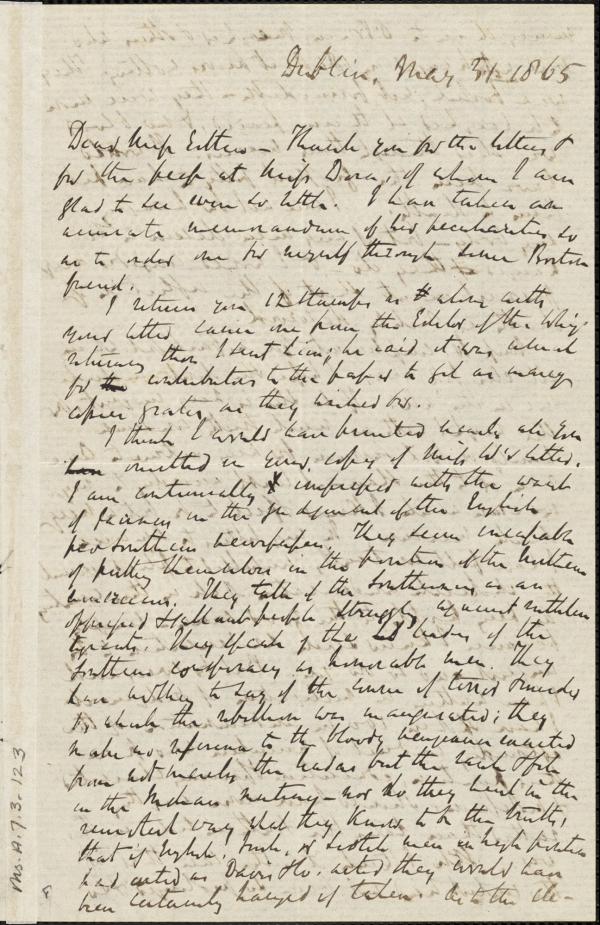 Dublin, May 31 - 1865
Dear Miss Estlin - Thank you for the letters &
for the peep at Miss Dora, of whom I am
glad to see even so little. I have taken an
accurate memorandum of her peculiarities so
as to order one for myself through some Boston
friend.
I return you 12 stamps as along with
your letter came one from the Editor of the
returning them I sent him; he said it was usual
for the contributors to the paper to get as many
copies gratis, as they wished for.
I think I would have printed nearly all you
have omitted in your copy of Miss W's letter.
I am continually impressed with the want
of fairness in the judgment of the English
pro Southern newspapers. They seem incapable
of putting themselves in the position of the Northern
Americans. They talk of the Southerners as an
oppressed & gallant people struggling against ruthless
tyrants. They speak of the leaders of the
Southern conspiracy as honorable men. They
have nothing to say of the course of terror & murder
by which the rebellion was inaugurated; they
make no reference to the bloody vengeance exacted
from not merely the leaders but the rank & file
in the Indian mutiny - nor do they hint in the
remotest way what they know to be the truth,
that if English, Irish, or Scotch men in high position
had acted as Davis &c. acted they would have
been certainly hanged if taken. As to the
Ms. A. 7. 3. 123